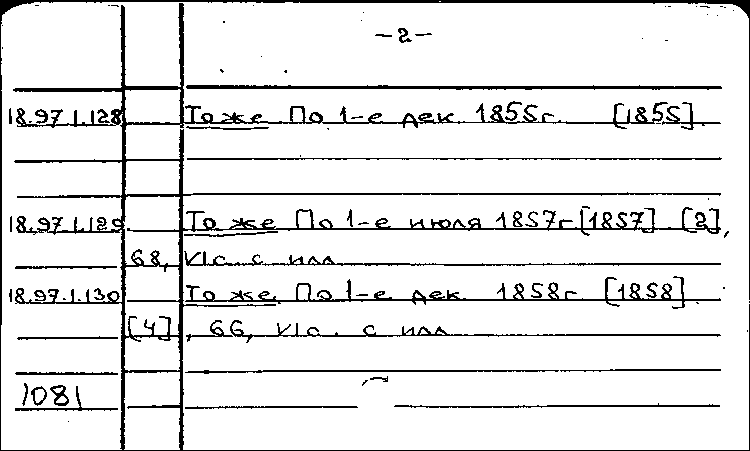 -2-
18.97.1.128 То же По 1-е дек. 1855г. [1855].
18.97.1.129. То же По 1-е июля 1857г [1857] [2],
68, VIс. с илл
18.97.1.130 То же. По 1-е дек. 1858г [1858]
[4], 66, VIс. с илл
1081